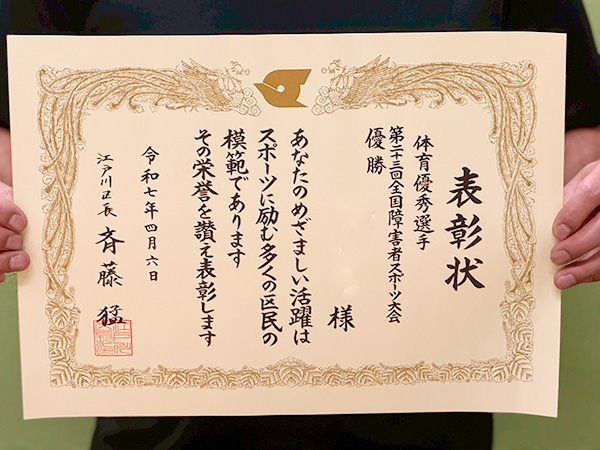 表彰状
体育優秀選手
第二十三回全国障害者スポーツ大会
優勝
様
あなたのめざましい活躍は
スポーツに励む多くの区民の
模範であります
その栄誉を讃え表彰します
令和七年四月六日
江戸川区長 斉藤 猛